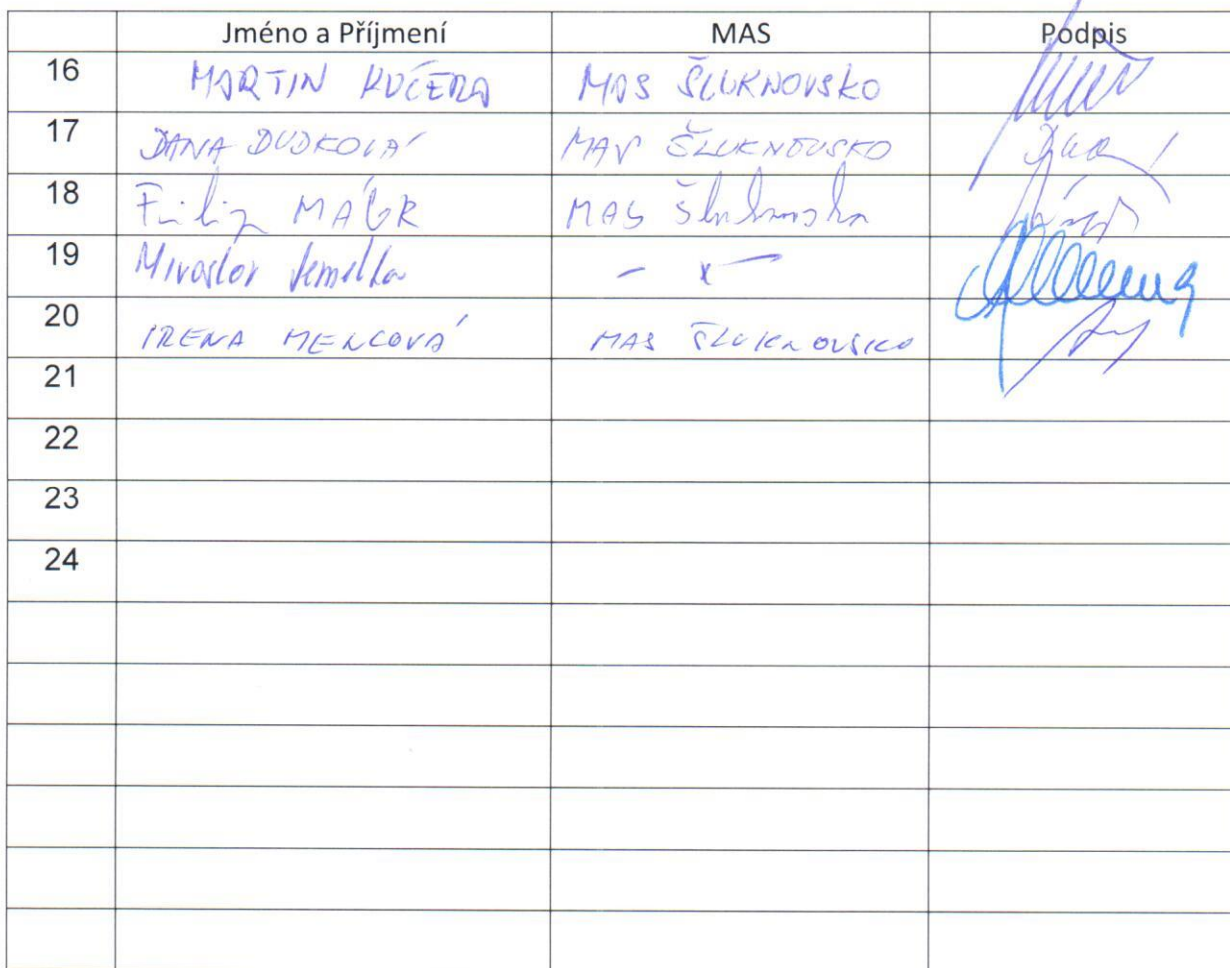 Jméno a Příjmení MAS Podpis
16 MARTIN KUČERA MAS ŠLUKNOVSKO
17 DANA DUDKOVÁ MAS ŠLUKNOVSKO
18 Filip MÁGR MAS Šluknovsko
19 Miroslav Jemelka
20 IRENA MENCOVÁ MAS ŠLUKNOVSKO
21
22
23
24